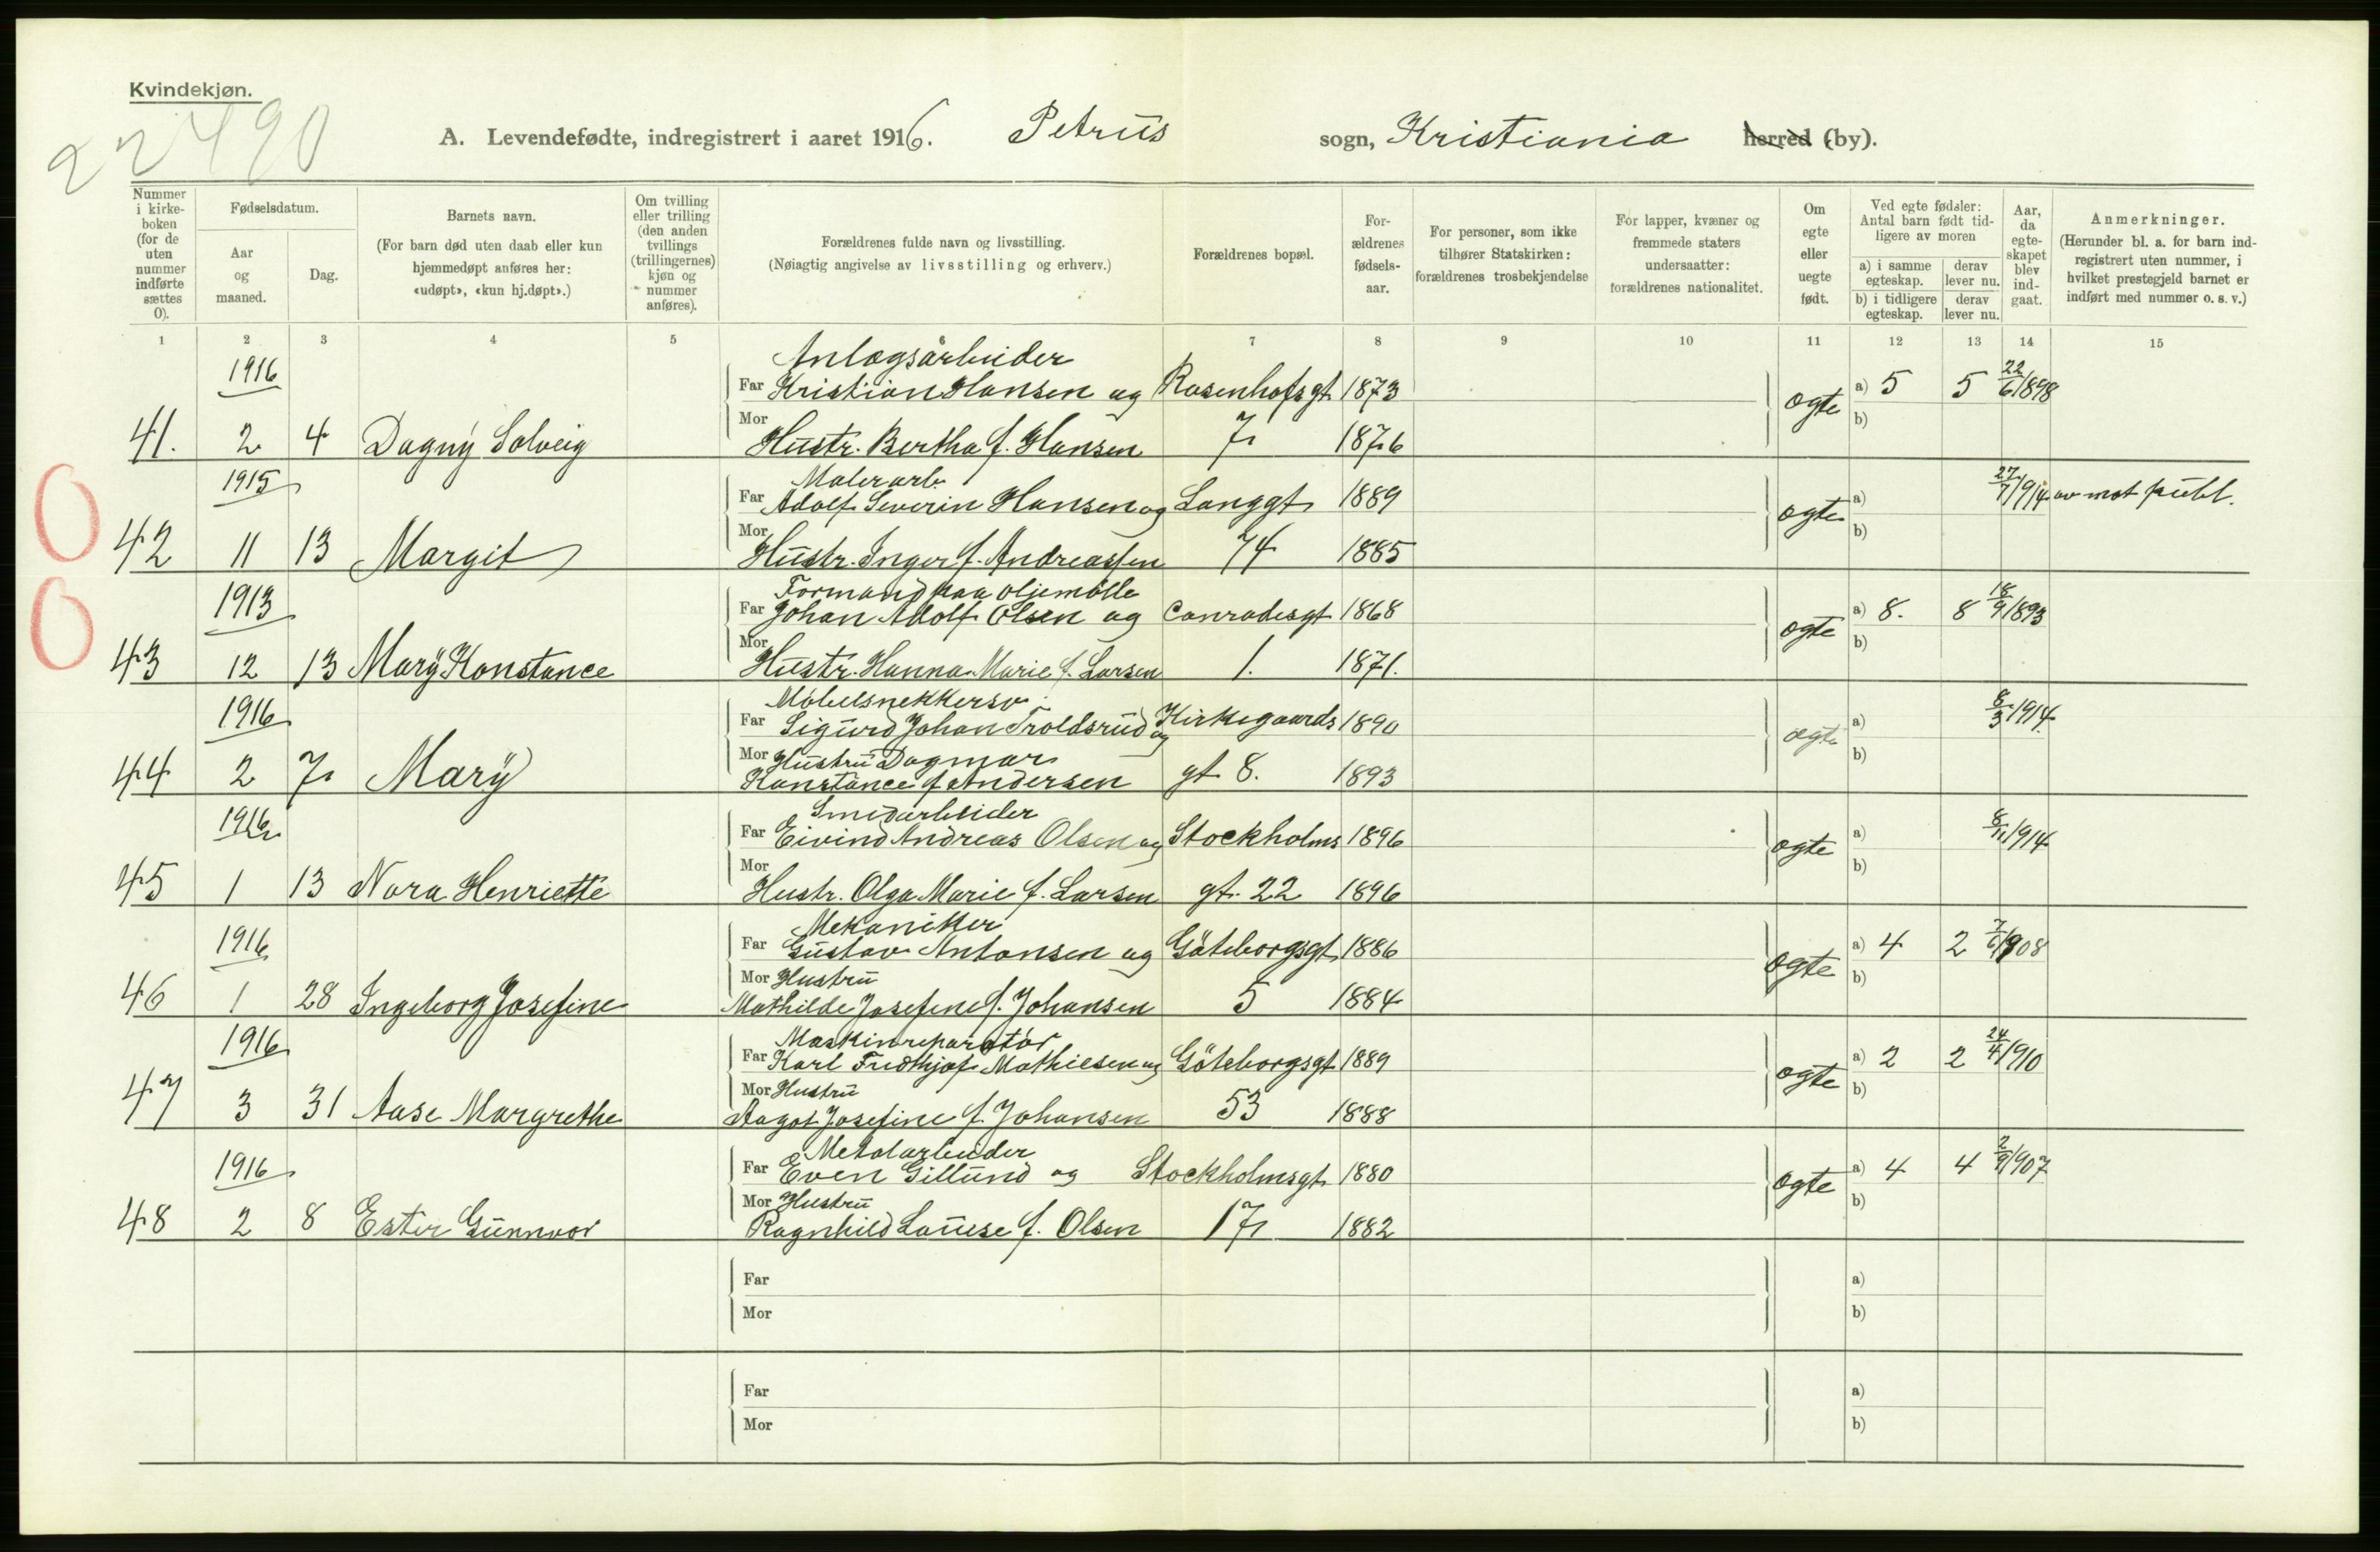 Kvindekjøn.
22490
A. Levendefødte, indregistrert i aaret 1916. Petrus sogn, Kristiania herred (by).
Nummer i kirkeboken (for de uten nummer indførte sættes 0).
Fødselsdatum.
Aar og maaned.
Dag.
Barnets navn.
(For barn død uten daab eller kun hjemmedøpt anføres her: «udøpt», «kun hj.døpt».)
Om tvilling eller trilling (den anden tvillings (trillingernes) kjøn og nummer anføres).
Forældrenes fulde navn og livsstilling.
(Nøiagtig angivelse av livsstilling og erhverv.)
Forældrenes bopæl.
Forældrenes fødselsaar.
For personer, som ikke tilhører Statskirken: forældrenes trosbekjendelse
For lapper, kvæner og fremmede staters undersaatter: forældrenes nationalitet.
Om egte eller uegte født.
Ved egte fødsler: Antal barn født tidligere av moren
a) i samme egteskap. derav lever nu.
b) i tidligere egteskap. derav lever nu.
Aar, da egteskapet blev indgaat.
Anmerkninger.
(Herunder bl. a. for barn indregistrert uten nummer, i hvilket prestegjeld barnet er indført med nummer o. s. v.)
1 2 3 4 5 6 7 8 9 10 11 12 13 14 15
1916 Anlægsarbeider
Far Kristian Hansen og Rosenhofsgt 1873 ægte a) 5 5 22/6 1898
41. 2 4 Dagny Solveig Mor Hustr. Bertha f. Hansen 7 1876 b)
1915 Malerarb.
Far Adolf Severin Hansen og Langgt 1889 ægte a) 27/7 1914 av mot publ.
0 42 11 13 Margit Mor Hustr. Inger f. Andreassen 74 1885 b)
1913 Formand paa oljemølle
Far Johan Adolf Olsen og Conradisgt 1868 ægte a) 8. 8 18/9 1893
0 43 12 13 Mary Konstance Mor Hustr. Hanna Marie f. Larsen 1. 1871. b)
1916 Møbelsnekkersv.
Far Sigurd Johan Troldsrud og Kirkegaards 1890 ægte a) 8/3 1914
Mor Hustru Dagmar
44 2 7 Mary Konstance f. Andersen gt 8. 1893 b)
1916 Smedarbeider
Far Eivind Andreas Olsen og Stockholms 1896 ægte a) 8/11 1914
45 1 13 Nora Henriette Mor Hustr. Olga Marie f. Larsen gt. 22 1896 b)
1916 Mekaniker
Far Gustav Antonsen og Göteborgsgt 1886 ægte a) 4 2 7/6 1908
Mor Hustru
46 1 28 Ingeborg Josefine Mathilde Josefine f. Johansen 5 1884 b)
1916 Maskinreparatør
Far Karl Fridthjof Mathiesen og Göteborgsgt 1889 ægte a) 2 2 24/4 1910
Mor Hustru
47 3 31 Aase Margrethe Aagot Josefine f. Johansen 53 1888 b)
1916 Metalarbeider
Far Even Gillund og Stockholmsgt 1880 ægte a) 4 4 2/9 1907
Mor Hustru
48 2 8 Ester Gunnvor Ragnhild Louise f. Olsen 17 1882 b)
Far a)
Mor b)
Far a)
Mor b)